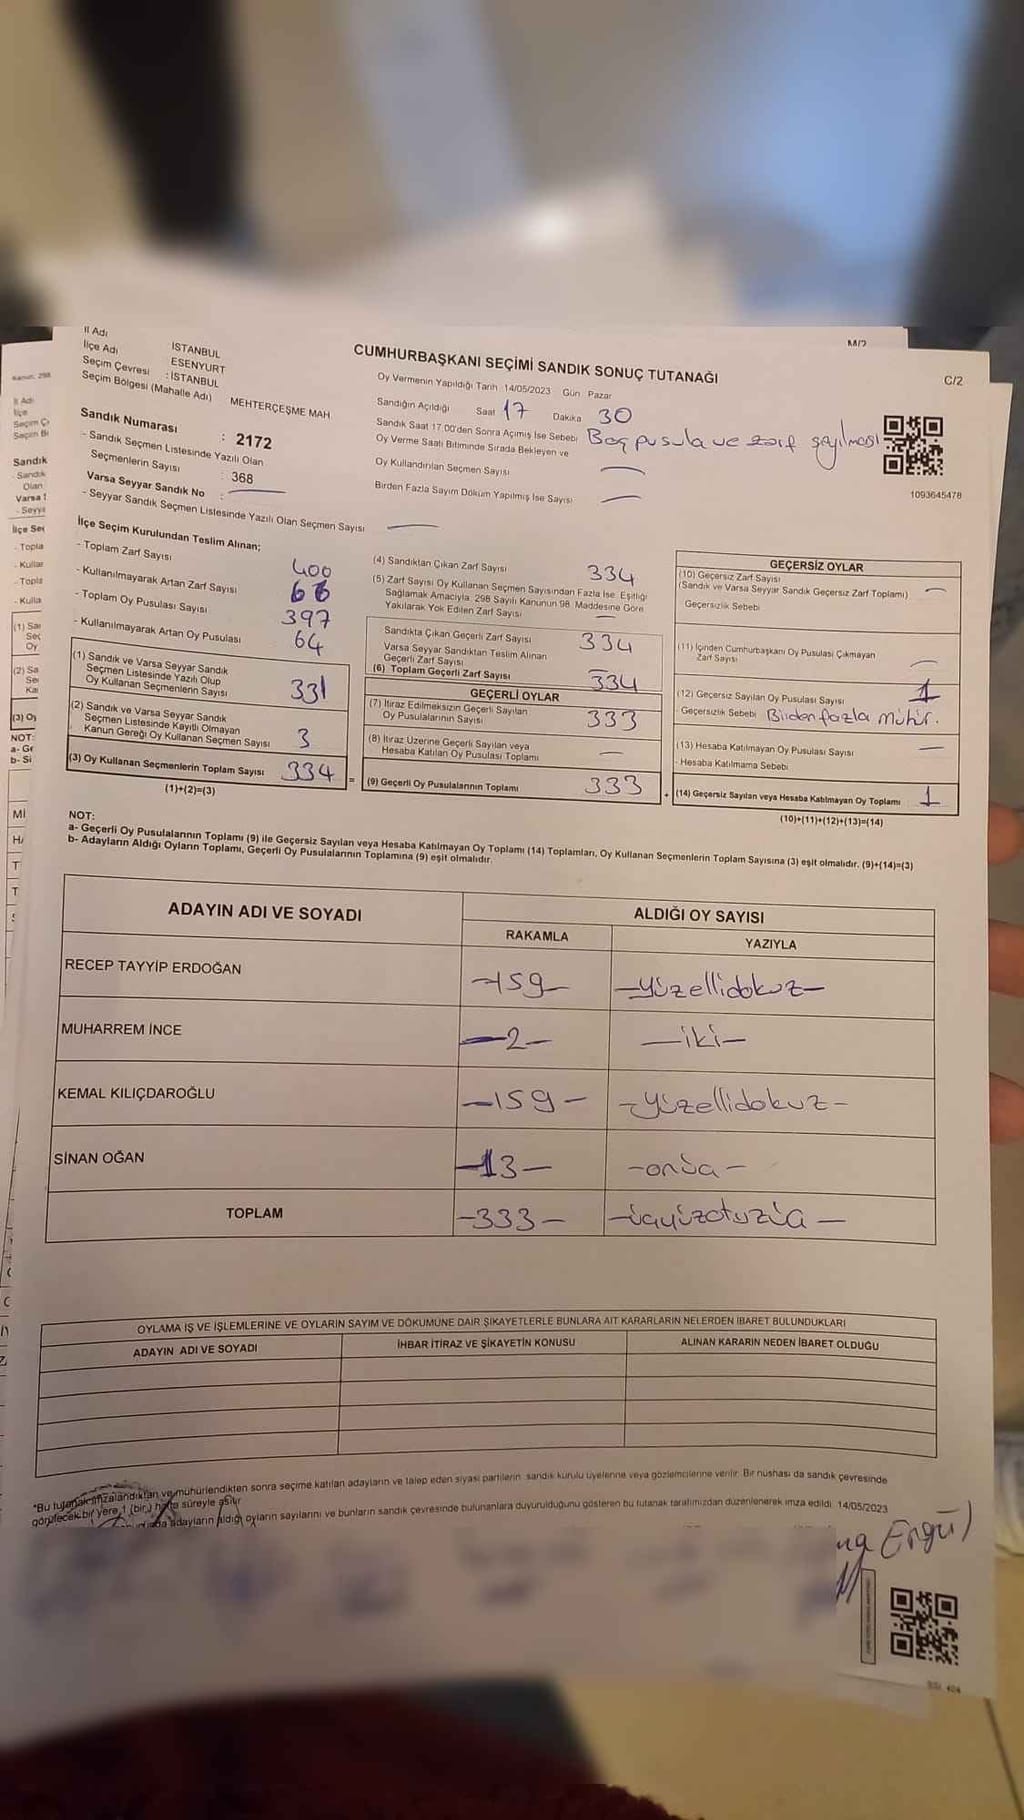 İl Adı İSTANBUL
İlçe Adı ESENYURT
Seçim Çevresi : İSTANBUL
Seçim Bölgesi (Mahalle Adı) MEHTERÇEŞME MAH.
CUMHURBAŞKANI SEÇİMİ SANDIK SONUÇ TUTANAĞI
C/2
Oy Vermenin Yapıldığı Tarih 14/05/2023 Gün Pazar
Sandığın Açıldığı Saat 17 Dakika 30
Sandık Saat 17.00'den Sonra Açımış İse Sebebi Boş pusula ve zarf sayılması
Oy Verme Saati Bitiminde Sırada Bekleyen ve
Oy Kullandırılan Seçmen Sayısı —
Birden Fazla Sayım Döküm Yapılmış İse Sayısı —
1093645478
Sandık Numarası : 2172
- Sandık Seçmen Listesinde Yazılı Olan
Seçmenlerin Sayısı : 368
Varsa Seyyar Sandık No : —
- Seyyar Sandık Seçmen Listesinde Yazılı Olan Seçmen Sayısı —
İlçe Seçim Kurulundan Teslim Alınan;
- Toplam Zarf Sayısı 400
- Kullanılmayarak Artan Zarf Sayısı 66
- Toplam Oy Pusulası Sayısı 397
- Kullanılmayarak Artan Oy Pusulası 64
(1) Sandık ve Varsa Seyyar Sandık
Seçmen Listesinde Yazılı Olup
Oy Kullanan Seçmenlerin Sayısı 331
(2) Sandık ve Varsa Seyyar Sandık
Seçmen Listesinde Kayıtlı Olmayan
Kanun Gereği Oy Kullanan Seçmen Sayısı 3
(3) Oy Kullanan Seçmenlerin Toplam Sayısı 334 =
(1)+(2)=(3)
(4) Sandıktan Çıkan Zarf Sayısı 334
(5) Zarf Sayısı Oy Kullanan Seçmen Sayısından Fazla İse, Eşitliği
Sağlamak Amacıyla, 298 Sayılı Kanunun 98. Maddesine Göre
Yakılarak Yok Edilen Zarf Sayısı —
Sandıkta Çıkan Geçerli Zarf Sayısı 334
Varsa Seyyar Sandıktan Teslim Alınan
Geçerli Zarf Sayısı
(6) Toplam Geçerli Zarf Sayısı 334
GEÇERLİ OYLAR
(7) İtiraz Edilmeksizin Geçerli Sayılan
Oy Pusulalarının Sayısı 333
(8) İtiraz Üzerine Geçerli Sayılan veya
Hesaba Katılan Oy Pusulası Toplamı —
(9) Geçerli Oy Pusulalarının Toplamı 333 +
GEÇERSİZ OYLAR
(10) Geçersiz Zarf Sayısı
(Sandık ve Varsa Seyyar Sandık Geçersiz Zarf Toplamı) —
Geçersizlik Sebebi
(11) İçinden Cumhurbaşkanı Oy Pusulası Çıkmayan
Zarf Sayısı —
(12) Geçersiz Sayılan Oy Pusulası Sayısı 1
Geçersizlik Sebebi Birden fazla Mühür.
(13) Hesaba Katılmayan Oy Pusulası Sayısı —
- Hesaba Katılmama Sebebi
(14) Geçersiz Sayılan veya Hesaba Katılmayan Oy Toplamı 1
(10)+(11)+(12)+(13)=(14)
NOT:
a- Geçerli Oy Pusulalarının Toplamı (9) ile Geçersiz Sayılan veya Hesaba Katılmayan Oy Toplamı (14) Toplamları, Oy Kullanan Seçmenlerin Toplam Sayısına (3) eşit olmalıdır. (9)+(14)=(3)
b- Adayların Aldığı Oyların Toplamı, Geçerli Oy Pusulalarının Toplamına (9) eşit olmalıdır.
ADAYIN ADI VE SOYADI ALDIĞI OY SAYISI
RAKAMLA YAZIYLA
RECEP TAYYİP ERDOĞAN -159- -yüzellidokuz-
MUHARREM İNCE -2- -iki-
KEMAL KILIÇDAROĞLU -159- -yüzellidokuz-
SİNAN OĞAN -13- -onüç-
TOPLAM -333- -üçyüzotuzüç-
OYLAMA İŞ VE İŞLEMLERİNE VE OYLARIN SAYIM VE DÖKÜMÜNE DAİR ŞİKAYETLERLE BUNLARA AİT KARARLARIN NELERDEN İBARET BULUNDUKLARI
ADAYIN ADI VE SOYADI İHBAR İTİRAZ VE ŞİKAYETİN KONUSU ALINAN KARARIN NEDEN İBARET OLDUĞU
*Bu tutanak imzalandıktan ve mühürlendikten sonra seçime katılan adayların ve talep eden siyasi partilerin sandık kurulu üyelerine veya gözlemcilerine verilir. Bir nüshası da sandık çevresinde
görülecek bir yere 1 (bir) hafta süreyle asılır
adayların aldığı oyların sayılarını ve bunların sandık çevresinde bulunanlara duyurulduğunu gösteren bu tutanak tarafımızdan düzenlenerek imza edildi. 14/05/2023
Ergül